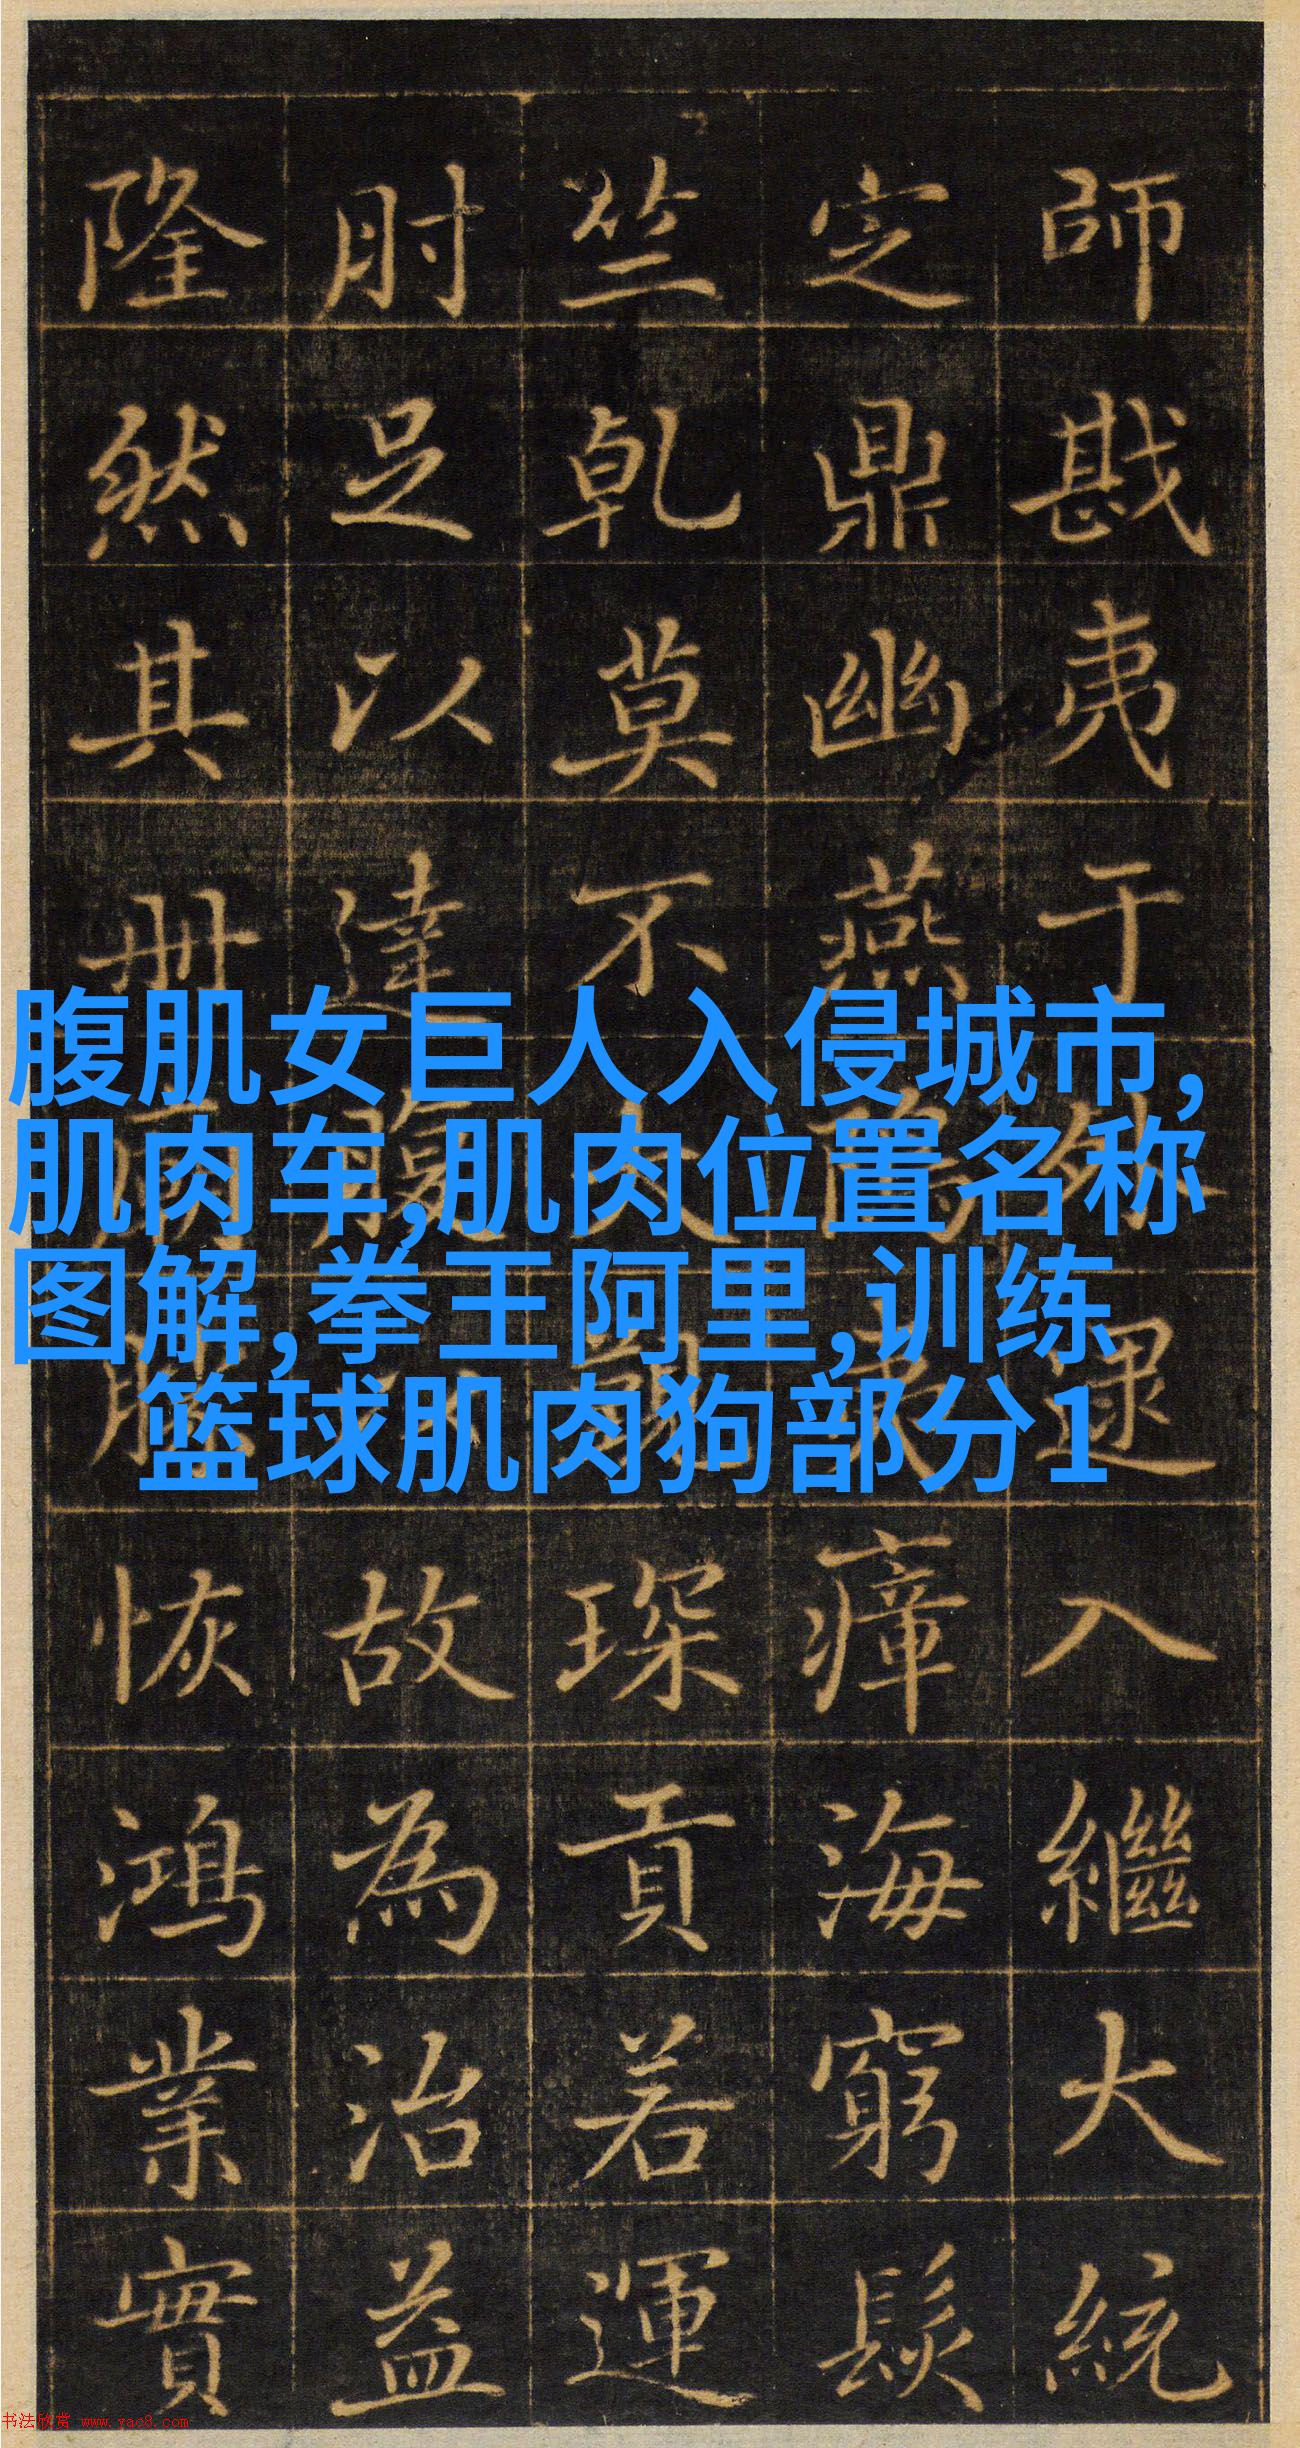 師戡夷于入繼大統
定鼎幽燕瘴海窮髮
竺乾莫不琛貢若運
肘足以達腹故為治益
隆然其册恢鴻業實
腹肌女巨人入侵城市,
肌肉车,肌肉位置名称
图解,拳王阿里,训练
篮球肌肉狗部分1
书法欣赏 www.yac8.com